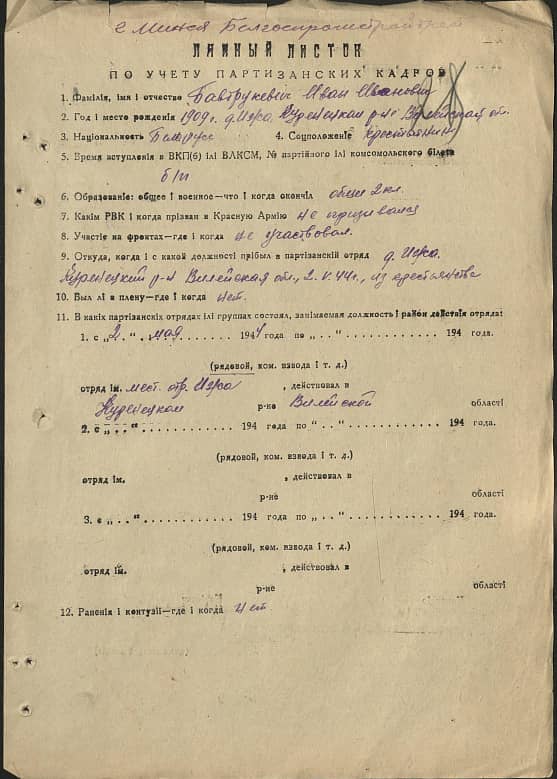 г. Минск Белгоспромстройтрест
ЛИЧНЫЙ ЛИСТОК
ПО УЧЕТУ ПАРТИЗАНСКИХ КАДРОВ
1. Фамілія, імя і отчество Бавтрукевич Иван Иванович
2. Год і место рождения 1909 г. д. Ижа Куренецкого р-на Вилейской об.
3. Національность Белорус 4. Соцположение крестьянин
5. Время вступления в ВКП(б) ілі ВЛКСМ, № партийного ілі комсомольского білета
б/п
6. Образование: общее і военное—что і когда окончіл общее 2 кл.
7. Какім РВК і когда прізван в Красную Армію не призывался
8. Участіе на фронтах—где і когда не участвовал.
9. Откуда, когда і с какой должності прібыл в партизанскій отряд д. Ижа.
Куренецкий р-н Вилейская обл., 2.V.44 г., из крестьянства
10. Был лі в плену—где і когда нет.
11. В какіх партізанскіх отрядах ілі группах состоял, занімаемая должность і район действія отряда:
1. с „2“ мая 1944 года по „ . . “ 194 года.
(рядовой, ком. взвода і т. д.)
отряд ім. мест. отр. Ижа , действовал в
Куренецком р-не Вилейской області
2. с „ . . “ 194 года по „ . . “ 194 года.
(рядовой, ком. взвода і т. д.)
отряд ім. , действовал в
р-не області
3. с „ . . “ 194 года по „ . . “ 194 года.
(рядовой, ком. взвода і т. д.)
отряд ім. , действовал в
р-не області
12. Раненія і контузіі—где і когда нет